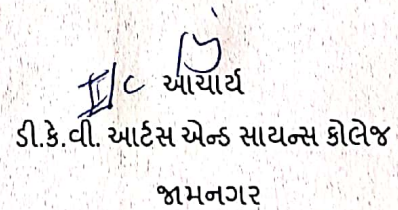 I/c આચાર્ય
ડી.કે.વી. આર્ટસ એન્ડ સાયન્સ કોલેજ
જામનગર